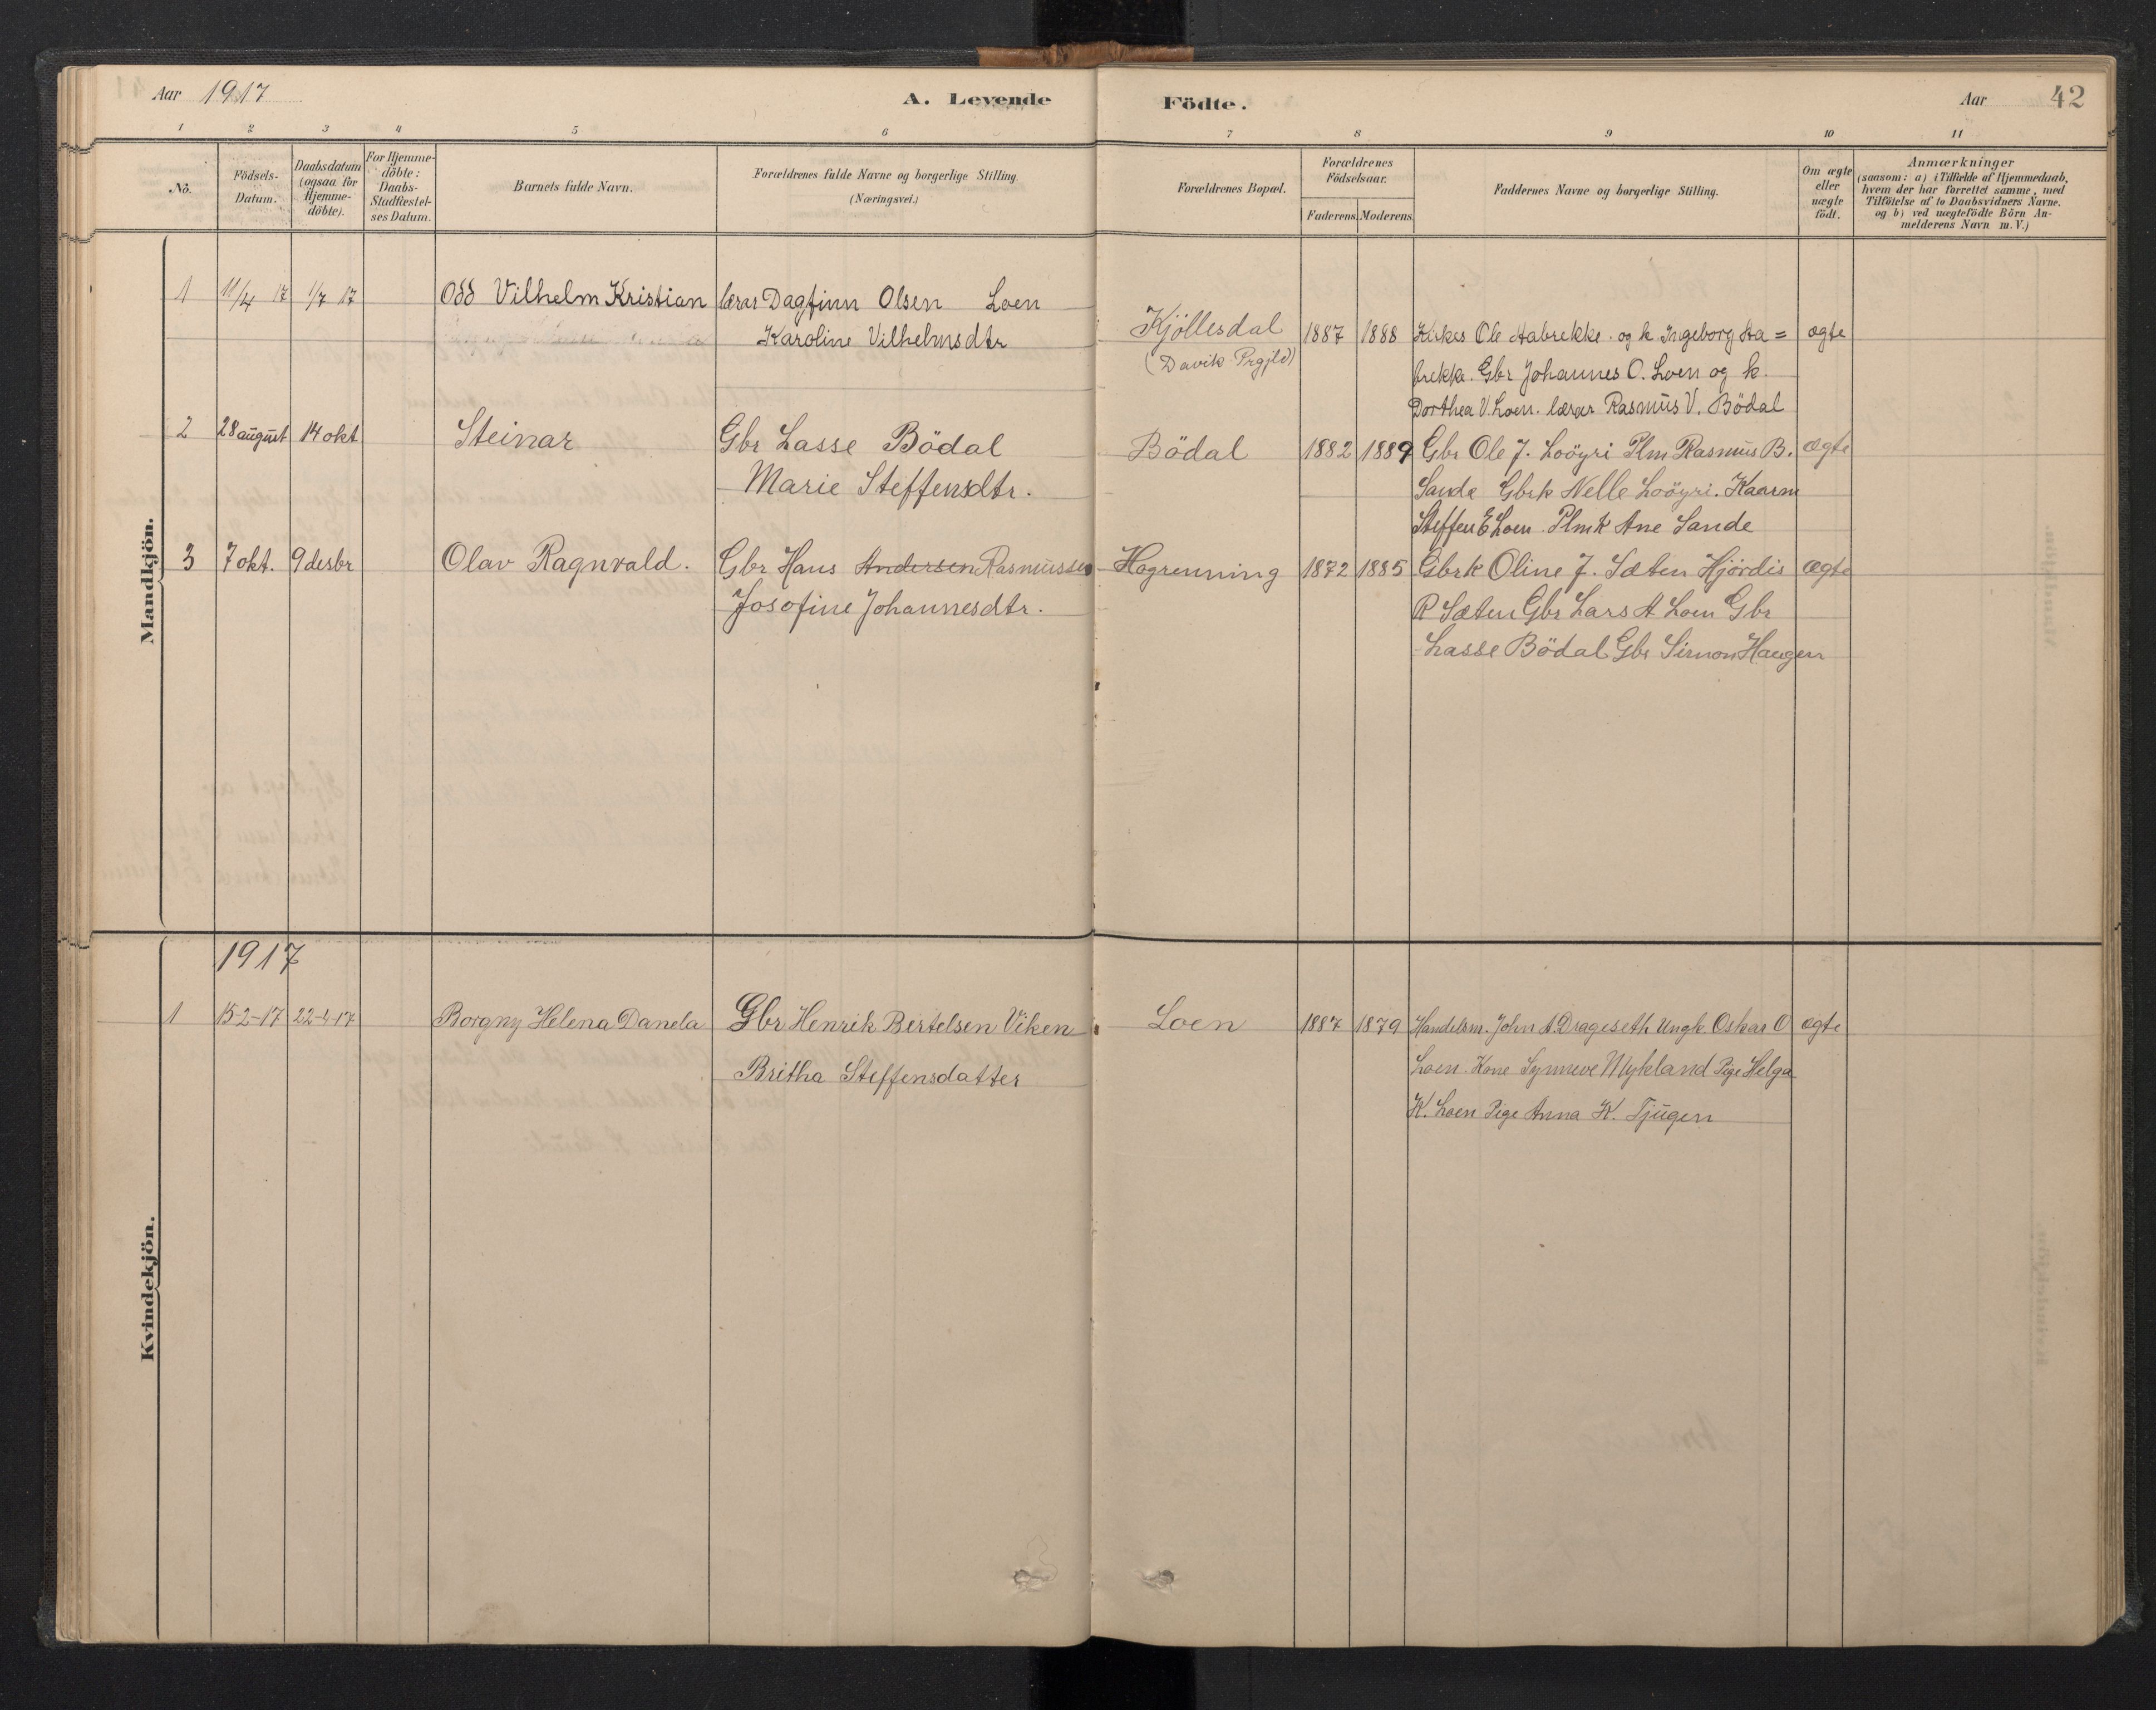 Aar 1917 A. Levende Födte. Aar 42
1 2 3 4 5 6 7 8 9 10 11
No.
Födsels-
Datum.
Daabsdatum
(ogsaa for
Hjemme-
döbte).
For Hjemme-
döbte:
Daabs-
Stadfæstel-
ses Datum.
Barnets fulde Navn.
Forældrenes fulde Navne og borgerlige Stilling.
(Næringsvei.)
Forældrenes Bopæl.
Forældrenes
Födselsaar.
Faderens. Moderens.
Faddernes Navne og borgerlige Stilling.
Om ægte
eller
uægte
födt.
Anmærkninger
(saasom: a) i Tilfælde af Hjemmedaab,
hvem der har forrettet samme, med
Tilföielse af to Daabsvidners Navne.
og b) ved uægtefödte Börn An-
melderens Navn m. V.)
Mandkjön.
1 11/4 17 1/7 17 Odd Vilhelm Kristian lærar Dagfinn Olsen Loen
Karoline Vilhelmsdtr
Kjöllesdal 1887 1888 Kirkes Ole Aabrekke. og k. Ingeborg Aa= ægte
(Davik Prgjld)
brekke. Gbr Johannes O. Loen og k.
Dorthea V. Loen. lærar Rasmus V. Bödal
2 28 august 14 okt Steinar Gbr Lasse Bödal Bödal 1882 1889 Gbr Ole J. Loöyri Plm Rasmus B. ægte
Marie Steffensdtr. Sande Gbrk Nelle Loöyri. Kaarm
Steffen E Loen. Plmk Ane Sande
3 7 okt. 9 desbr Olav Ragnvald. Gbr Hans Andersen Rasmussen Hogrenning 1872 1885 Gbrk Oline J. Sæten Hjördis ægte
Josofine Johannesdtr. R Sæten Gbr Lars A Loen Gbr
Lasse Bödal Gbr Simon Haugen
Kvindekjön.
1917
1 15-2-17 22-4-17 Borgny Helena Danela Gbr Henrik Bertelsen Viken Loen 1887 1879 Handelsm. John A. Drageseth Ungk. Oskar O ægte
Britha Steffensdatter Loen. Kone Synneve Mykland Pige Helga
K. Loen Pige Anna K. Tjugen